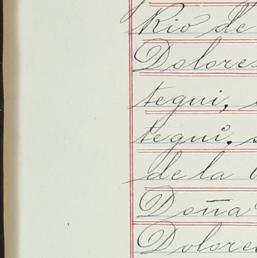 Rio de
Dolores
tegui,
tegui,
de la
Doña
Dolores